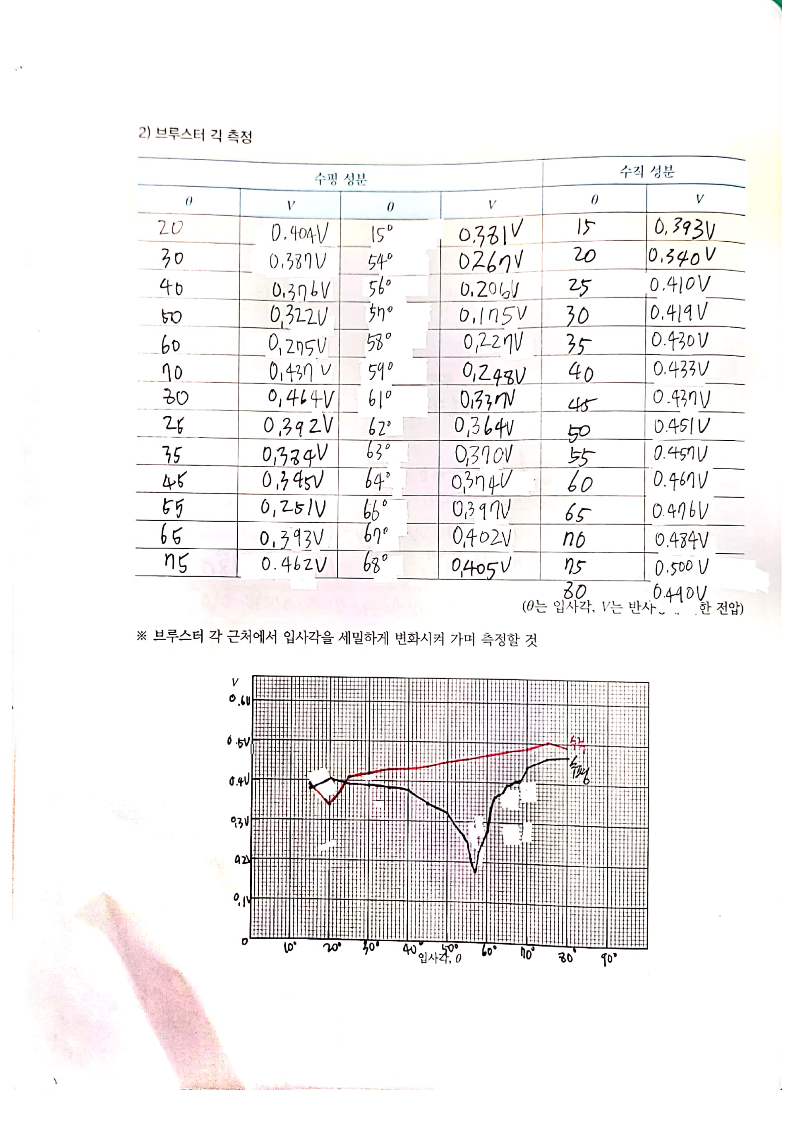 2) 브루스터 각 측정
수평 성분 수직 성분
θ V θ V θ V
20 0.404V 15° 0.381V 15 0.393V
30 0.387V 54° 0.267V 20 0.340V
40 0.376V 56° 0.206V 25 0.410V
50 0.322V 57° 0.175V 30 0.419V
60 0.275V 58° 0.227V 35 0.430V
70 0.437V 59° 0.248V 40 0.433V
80 0.464V 61° 0.337V 45 0.437V
25 0.392V 62° 0.364V 50 0.451V
35 0.384V 63° 0.370V 55 0.457V
45 0.345V 64° 0.374V 60 0.467V
55 0.251V 66° 0.397V 65 0.476V
65 0.393V 67° 0.402V 70 0.484V
75 0.462V 68° 0.405V 75 0.500V
80 0.440V
(θ는 입사각, V는 한 전압)
※ 브루스터 각 근처에서 입사각을 세밀하게 변화시켜 가며 측정할 것
V
0.6V
0.5V
수직
수평
0.4V
0.3V
0.2
0.1V
0 10° 20° 30° 40° 50° 60° 70° 80° 90°
입사각, θ